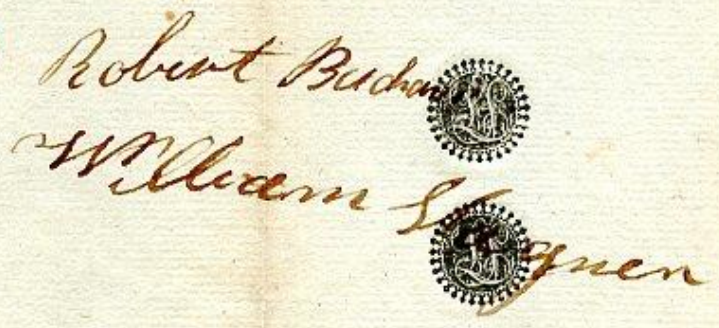 Robert Buchan
William
LS
LS